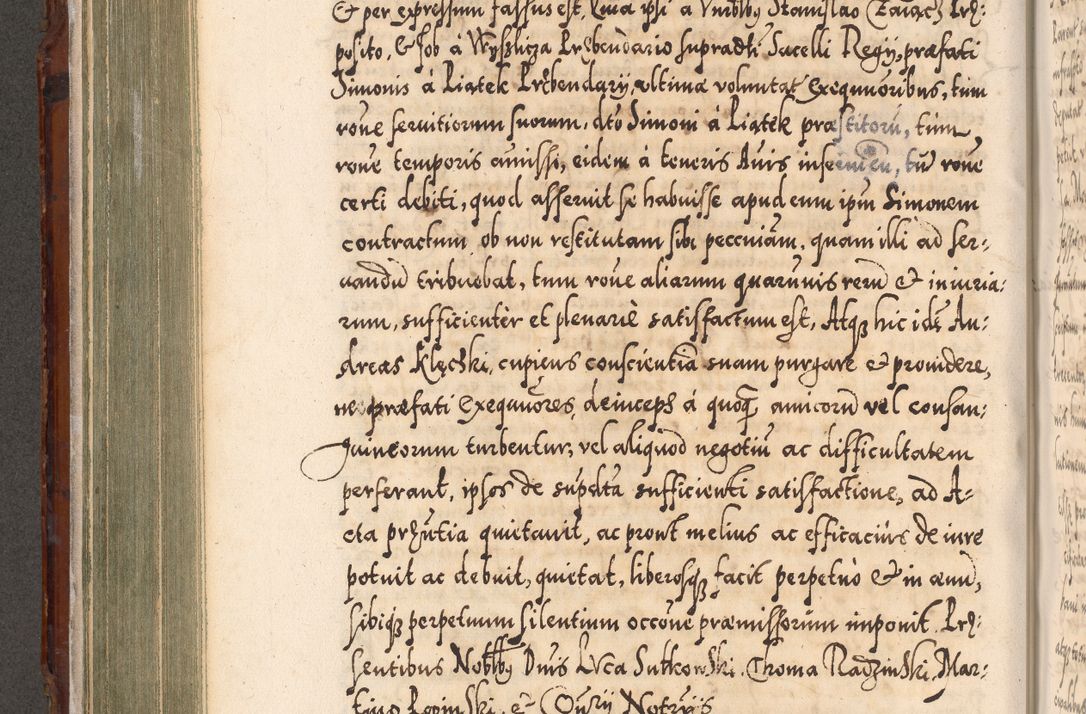 & per expressum fassus est, Quia ipsi à Vnblibus Stanislao Zaiącz Prę:
posito, & Job à Wyslicza Prębendario supradti Sacelli Regij, præfati
Simonis à Piątek Prębendarij, ultimæ voluntat Exequuoribus, tum
rõne seruitiorum suorum, dto Simoni à Piątek præstitorũ, tum
rõne temporis amissi, eidem à teneris Auis tũ rõne
certi debiti, quod asseruit se habuisse apud eum ipm Simonem
contractum ob non restitutam sibi pecuniam, quam illi ad ser:
uandũ tribuebat, tum rõne aliarum quarumuis rerũ & iniuria:
rum, sufficientèr et plenariè satisfactum est, Atq hic idẽ An:
dreas Klęchki, cupiens conscientiã suam purgare & prouidere,
ne præfati Exequuõres, deinceps à quoq amicorũ vel consan:
guineorum turbentur, vel aliquod negotiũ ac difficultatem
perferant, ipsos de supdta sufficienti satisfactione, ad A=
cta pręntia quietauit, ac prout melius ac efficaciùs de iure
potuit ac debuit, quietat, liberosq facit perpetuò & in æuũ,
sibiq perpetuum silentium occõne præmissorum imponit. Prę:
sentibus Nobblbs Dnis Luca Sutkowski, Thoma Radzinski, Mar=
tino Ropinski, & Notrijs